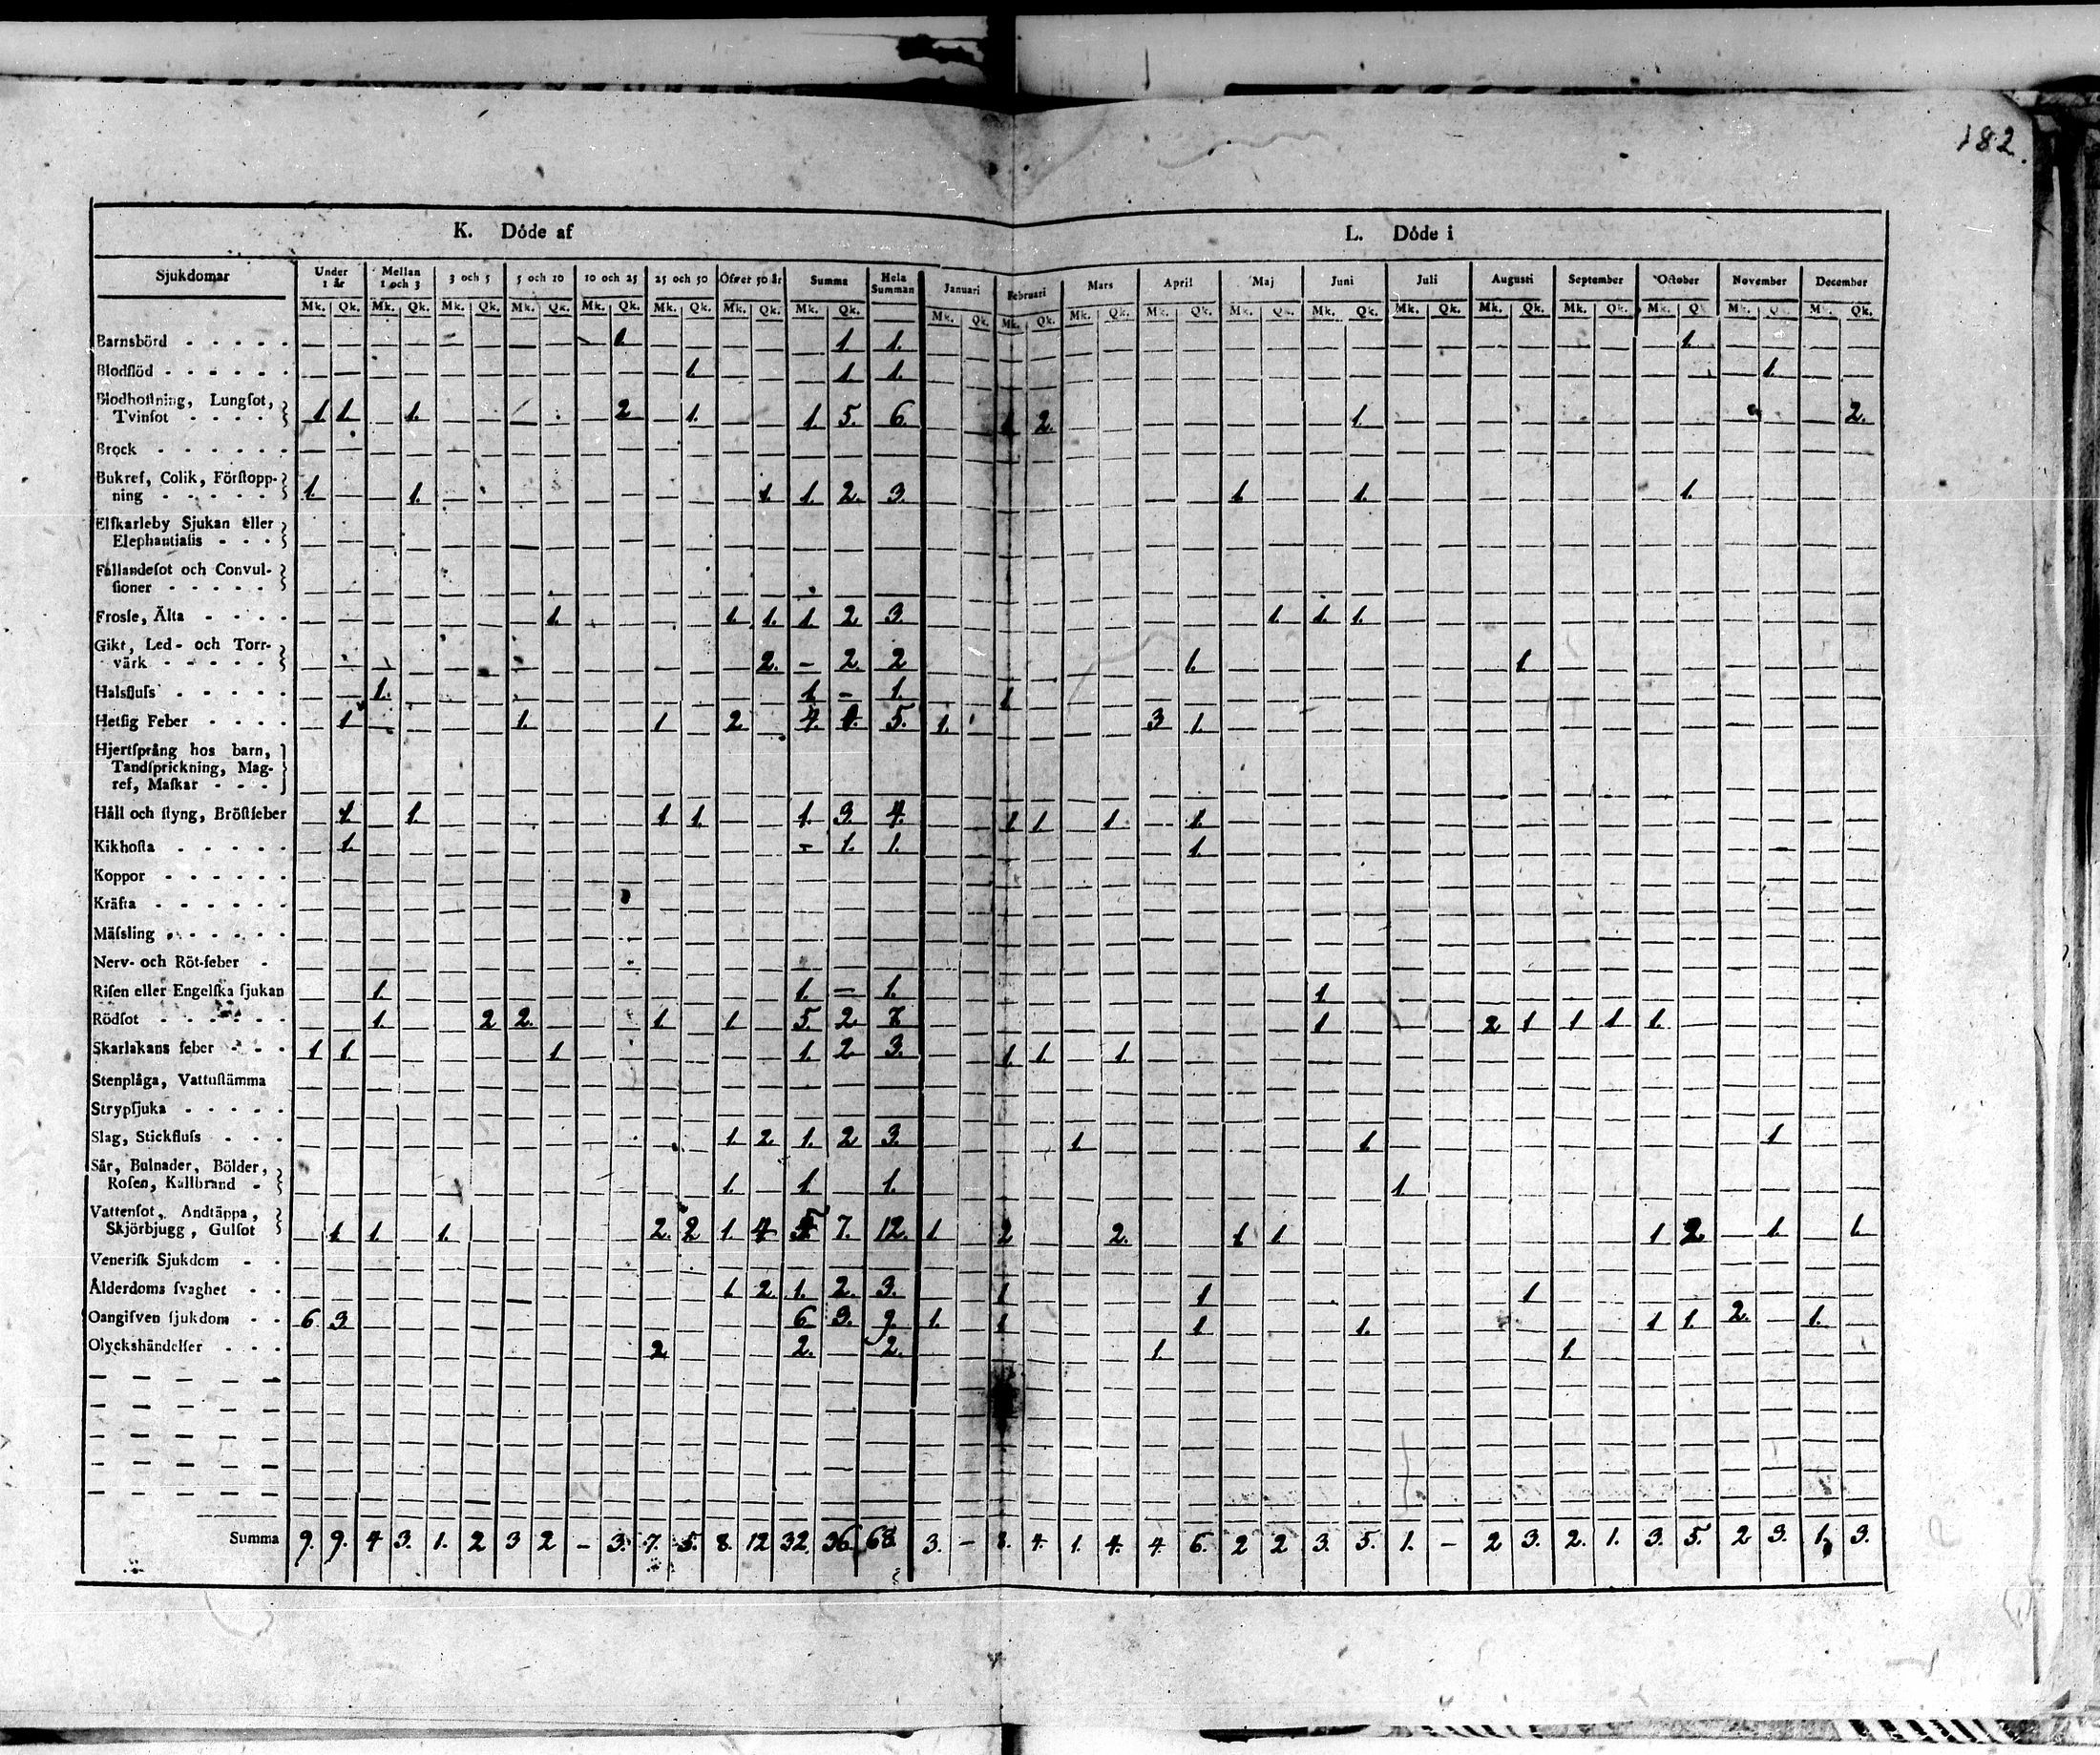 182.
K. Döde af L. Döde i
Sjukdomar Under 1 år Mellan 1 och 3 3 och 5 5 och 10 10 och 25 25 och 50 Öfver 50 år Summa Hela Summan Januari Februari Mars April Maj Juni Juli Augusti September October November December
Mk. Qk. Mk. Qk. Mk. Qk. Mk. Qk. Mk. Qk. Mk. Qk. Mk. Qk. Mk. Qk. Mk. Qk. Mk. Qk. Mk. Qk. Mk. Qk. Mk. Qk. Mk. Qk. Mk. Qk. Mk. Qk. Mk. Qk. Mk. Qk. Mk. Qk. Mk. Qk.
Barnsbörd - - - - - 1 1 1. 1.
Blodflöd - - - - - - 1. 1 1. 1.
Blodhoſtning, Lungſot,
Tvinſot - - - - 1 1 1. 2 1. 1. 5. 6. 1 2. 1. 2.
Brock - - - - - -
Bukref, Colik, Förſtopp-
ning - - - - - 1. 1. 1. 1. 2. 3. 1 1. 1.
Elſkarleby Sjukan eller
Elephantiaſis - - -
Fallandeſot och Convul-
ſioner - - - - -
Frosſe, Älta - - - - 1. 1. 1. 1. 2 3. 1 1. 1.
Gikt, Led- och Torr-
värk - - - - - 2. – 2. 2 1. 1
Halsfluſs - - - - - 1. 1 – 1. 1
Hetſig Feber - - - - 1 1. 1 2 4. 1. 5. 1. 3 1.
Hjertſprång hos barn,
Tandſprickning, Mag-
ref, Maſkar - - -
Håll och ſtyng, Bröſtfeber 1 1. 1 1. 1. 3 4. 1 1 1 1.
Kikhoſta - - - - - 1. – 1. 1. 1.
Koppor - - - - - -
Kräfta - - - - - -
Mäſsling - - - - - -
Nerv- och Röt-feber -
Riſen eller Engelſka ſjukan 1. 1. – 1. 1
Rödſot - - - - - - 1. 2 2. 1 1 5. 2 7. 1 2 1 1 1 1.
Skarlakans feber - - - 1 1. 1 1 2 3. 1 1. 1
Stenplåga, Vattuſtämma
Strypſjuka - - - - -
Slag, Stickfluſs - - - 1. 2 1. 2 3. 1 1 1
Sår, Bulnader, Bölder,
Roſen, Kallbrand - 1. 1. 1. 1
Vattenſot, Andtäppa,
Skjörbjugg, Gulſot 1 1 1. 2. 2 1. 4 5 7. 12. 1 2 2. 1 1 1 2 1. 1.
Veneriſk Sjukdom - -
Ålderdoms ſvaghet - - 1. 2 1. 2. 3. 1 1 1
Oangifven ſjukdom - - 6. 3. 6 3. 9. 1. 1 1 1. 1 1. 2. 1.
Olyckshändelſer - - - 2 2. 2. 1. 1.
Summa 9. 9. 4 3. 1. 2 3 2 – 3. 7. 5. 8. 12 32. 36. 68. 3. – 8. 4. 1. 4. 4. 6. 2 2 3. 5. 1. – 2 3. 2. 1. 3. 5. 2 3. 1. 3.